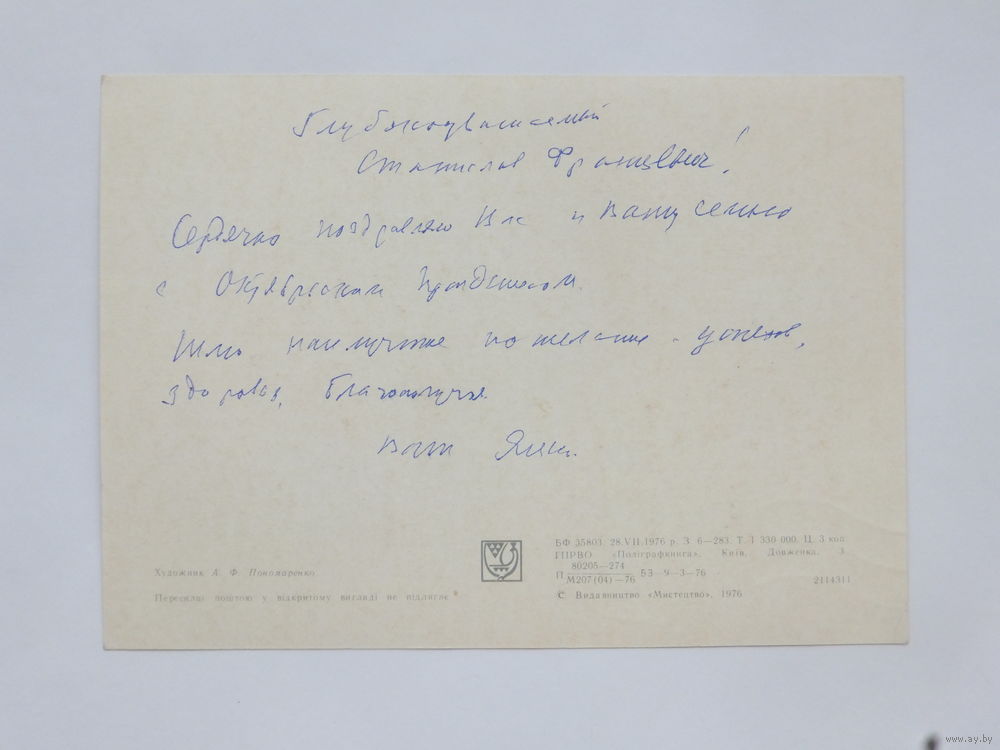 Глубокоуважаемый
Станислав Францевич!
Сердечно поздравляю Вас и Вашу семью
с Октябрьским праздником.
Шлю наилучшие пожелания - успехов,
здоровья, благополучия.
Ваш
Художник А. Ф. Пономаренко
Пересилці поштою у відкритому вигляді не підлягає
БФ 35803. 28.VII.1976 р. З. 6—283. Т. 1 330 000. Ц. 3 коп
ГПРВО «Поліграфкнига», Київ, Довженка, 3
П 80205—274
М207(04)—76 БЗ—9—3—76
2114311
© Видавництво «Мистецтво», 1976
www.ay.by